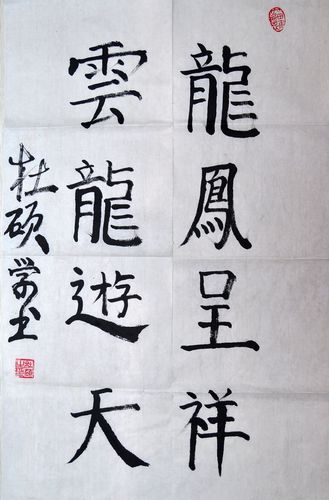 龍鳳呈祥
雲龍遊天
杜碩学书